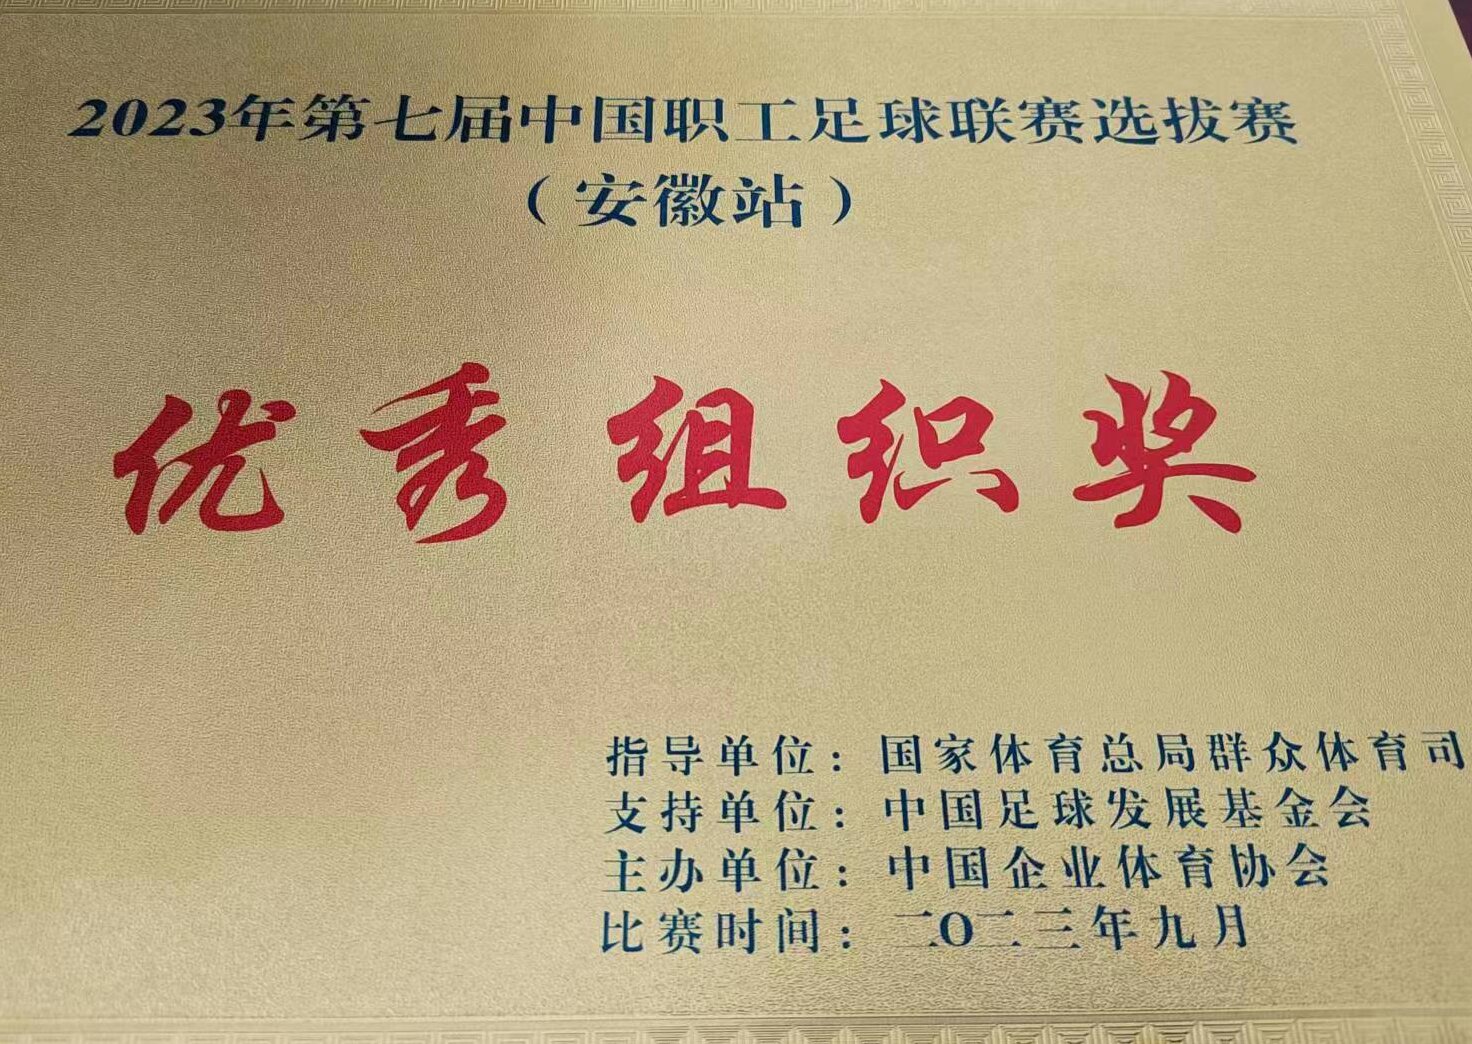 2023年第七届中国职工足球联赛选拔赛
（安徽站）
优秀组织奖
指导单位：国家体育总局群众体育司
支持单位：中国足球发展基金会
主办单位：中国企业体育协会
比赛时间：二O二三年九月